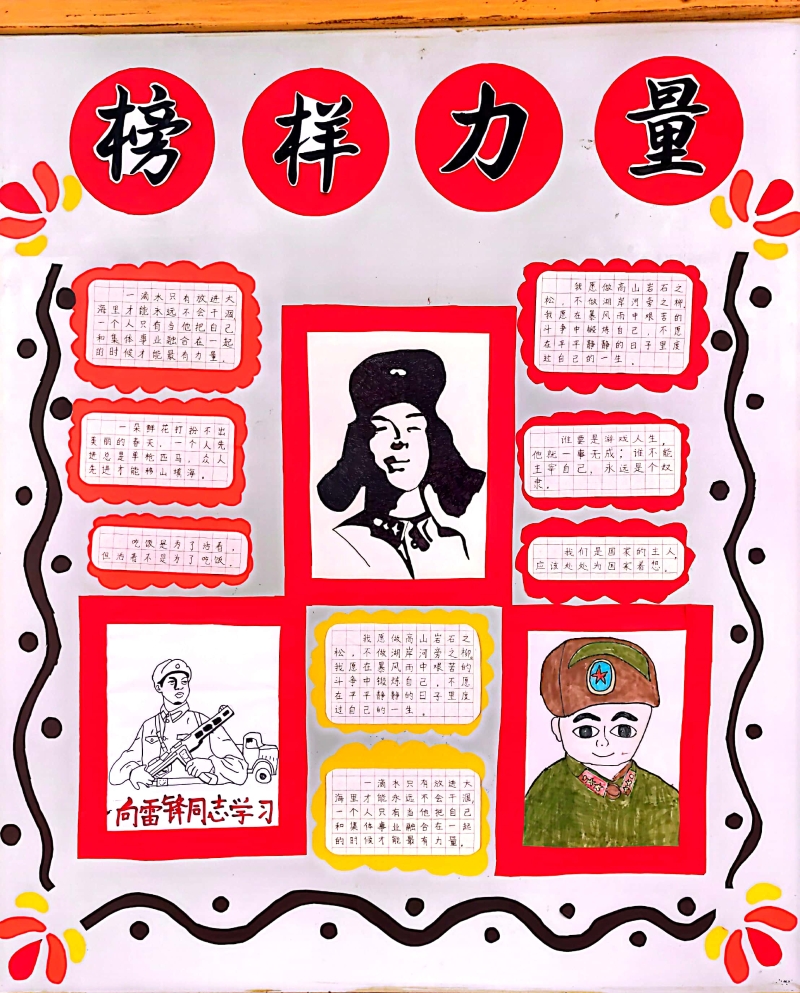 榜样力量
一滴水只有放进大
海里才能永远不会干涸
一个人只有当他把自己
和集体事业融合在一起
的时候才能最有力量。
一朵鲜花打扮不出
美丽的春天，一个人先
进总是单枪匹马，众人
先进才能移山填海。
吃饭是为了活着，
但活着不是为了吃饭．
向雷锋同志学习
我愿做高山岩石之
松，不做湖岸河旁之柳。
我愿在暴风雨中艰苦的
斗争中锻炼自己，不愿
在平平静静的日子里度
过自己的一生。
一滴水只有放进大
海里才能永远不会干涸
一个人只有当他把自己
和集体事业融合在一起
的时候才能最有力量。
我愿做高山岩石之
松，不做湖岸河旁之柳
我愿在暴风雨中艰苦的
斗争中锻炼自己，不愿
在平平静静的日子里度
过自己的一生。
谁要是游戏人生，
他就一事无成；谁不能
主宰自己，永远是个奴
隶。
我们是国家的主人，
应该处处为国家着想。